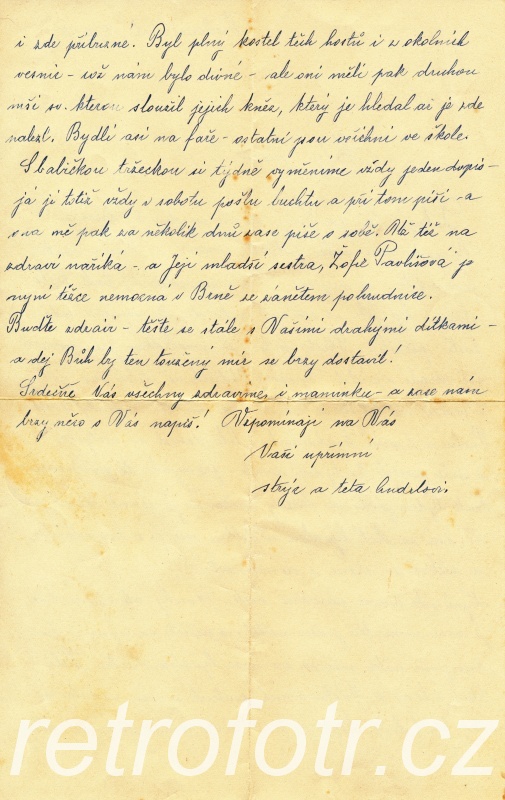 i zde příbuzné. Byl plný kostel těch hostů i z okolních
vesnic - což nám bylo divné - ale oni měli pak druhou
mši sv. kterou sloužil jejich kněz, který je hledal až je zde
nalezl. Bydlí asi na faře - ostatní jsou všichni ve škole.
S babičkou tržeckou si týdně vyměníme vždy jeden dopis -
já jí totiž vždy v sobotu pošlu buchtu a při tom píši - a
ona mě pak za několik dnů zase píše o sobě. Též na
zdraví naříká - a Její mladší sestra, Žofie Pavlišová je
nyní těžce nemocná v Brně se zánětem pohrudnice.
Buďte zdrávi - těšte se stále s Vašimi drahými dítkami -
a dej Bůh by ten toužený mír se brzy dostavil!
Srdečně Vás všechny zdravíme, i maminku - a zase nám
brzy něco o Vás napiš! Vzpomínají na Vás
Vaši upřímní
strýc a teta
retrofotr.cz